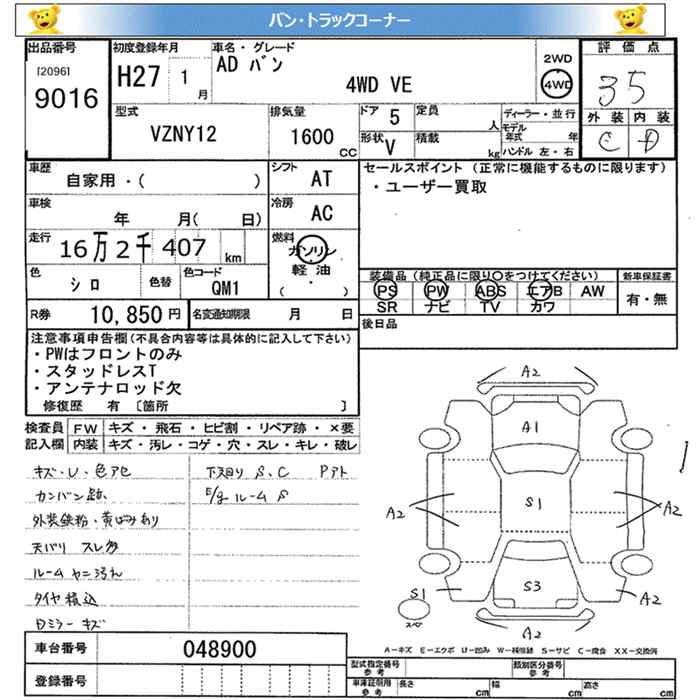 バン・トラックコーナー
出品番号
[2096]
9016
初度登録年月
H27 1月
車名・グレード
AD バン
4WD VE
2WD
4WD
評価点
35
外装 内装
C D
型式
VZNY12
排気量
1600 CC
ドア 5
形状 V
定員 人
積載 kg
ディーラー・並行
モデル年式 年
ハンドル 左・右
車歴
自家用・( )
シフト
AT
車検
年 月( 日)
冷房
AC
走行
16万2千407 km
燃料
ガソリン
軽油
( )
色
シロ
色替
色コード
QM1
R券 10,850円
名変通知期限 月 日
セールスポイント (正常に機能するものに限ります)
・ユーザー買取
装備品 (純正品に限り○をつけてください)
PS PW ABS エアB AW
SR ナビ TV カワ
新車保証書
有・無
後日品
注意事項申告欄(不具合内容等は具体的に記入して下さい)
・PWはフロントのみ
・スタッドレスT
・アンテナロッド欠
修復歴 有 [箇所 ]
検査員記入欄
FW キズ・飛石・ヒビ割・リペア跡・×要
内装 キズ・汚レ・コゲ・穴・スレ・キレ・破レ
キズ・U・色アセ
カンバン跡
外装鉄粉・黄ばみあり
天バリ スレ多
ルーム ヤニ汚れ
タイヤ積込
Dミラー キズ
下廻り S、C Pアト
E/g ルーム S
A2
A1
A2
S1
A2
S3
S1
A2
A2
スペア
A―キズ E―エクボ U―凹み W―補修跡 S―サビ C―腐食 XX―交換済
車台番号 048900
登録番号
型式指定番号 参考
類別区分番号 参考
車庫証明用 参考
長さ cm
幅 cm
高さ cm